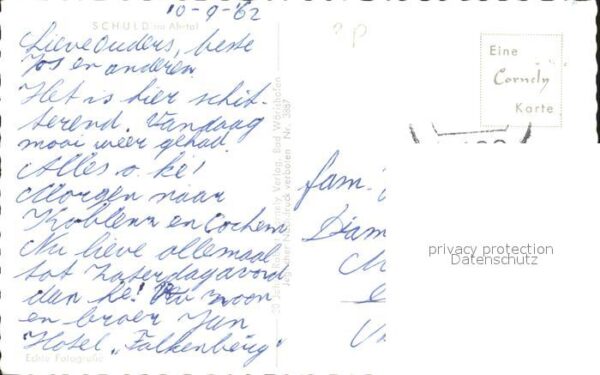 10-9-'62
SCHULD im Ahrtal
Lieve ouders, beste
Jos en anderen
Het is hier schit-
terend. Vandaag
mooi weer gehad.
Alles o.ke!
Morgen naar
Koblenz en Cochem
Nu lieve allemaal
tot Zaterdagavond
dan hé! Uw zoon
en broer Jan
Hotel „Falkenberg"
Echte Fotografie
Verlag, Bad Wörishofen
Nachdruck verboten Nr. 3867
Eine
Cornely
Karte
fam.
privacy protection
Datenschutz